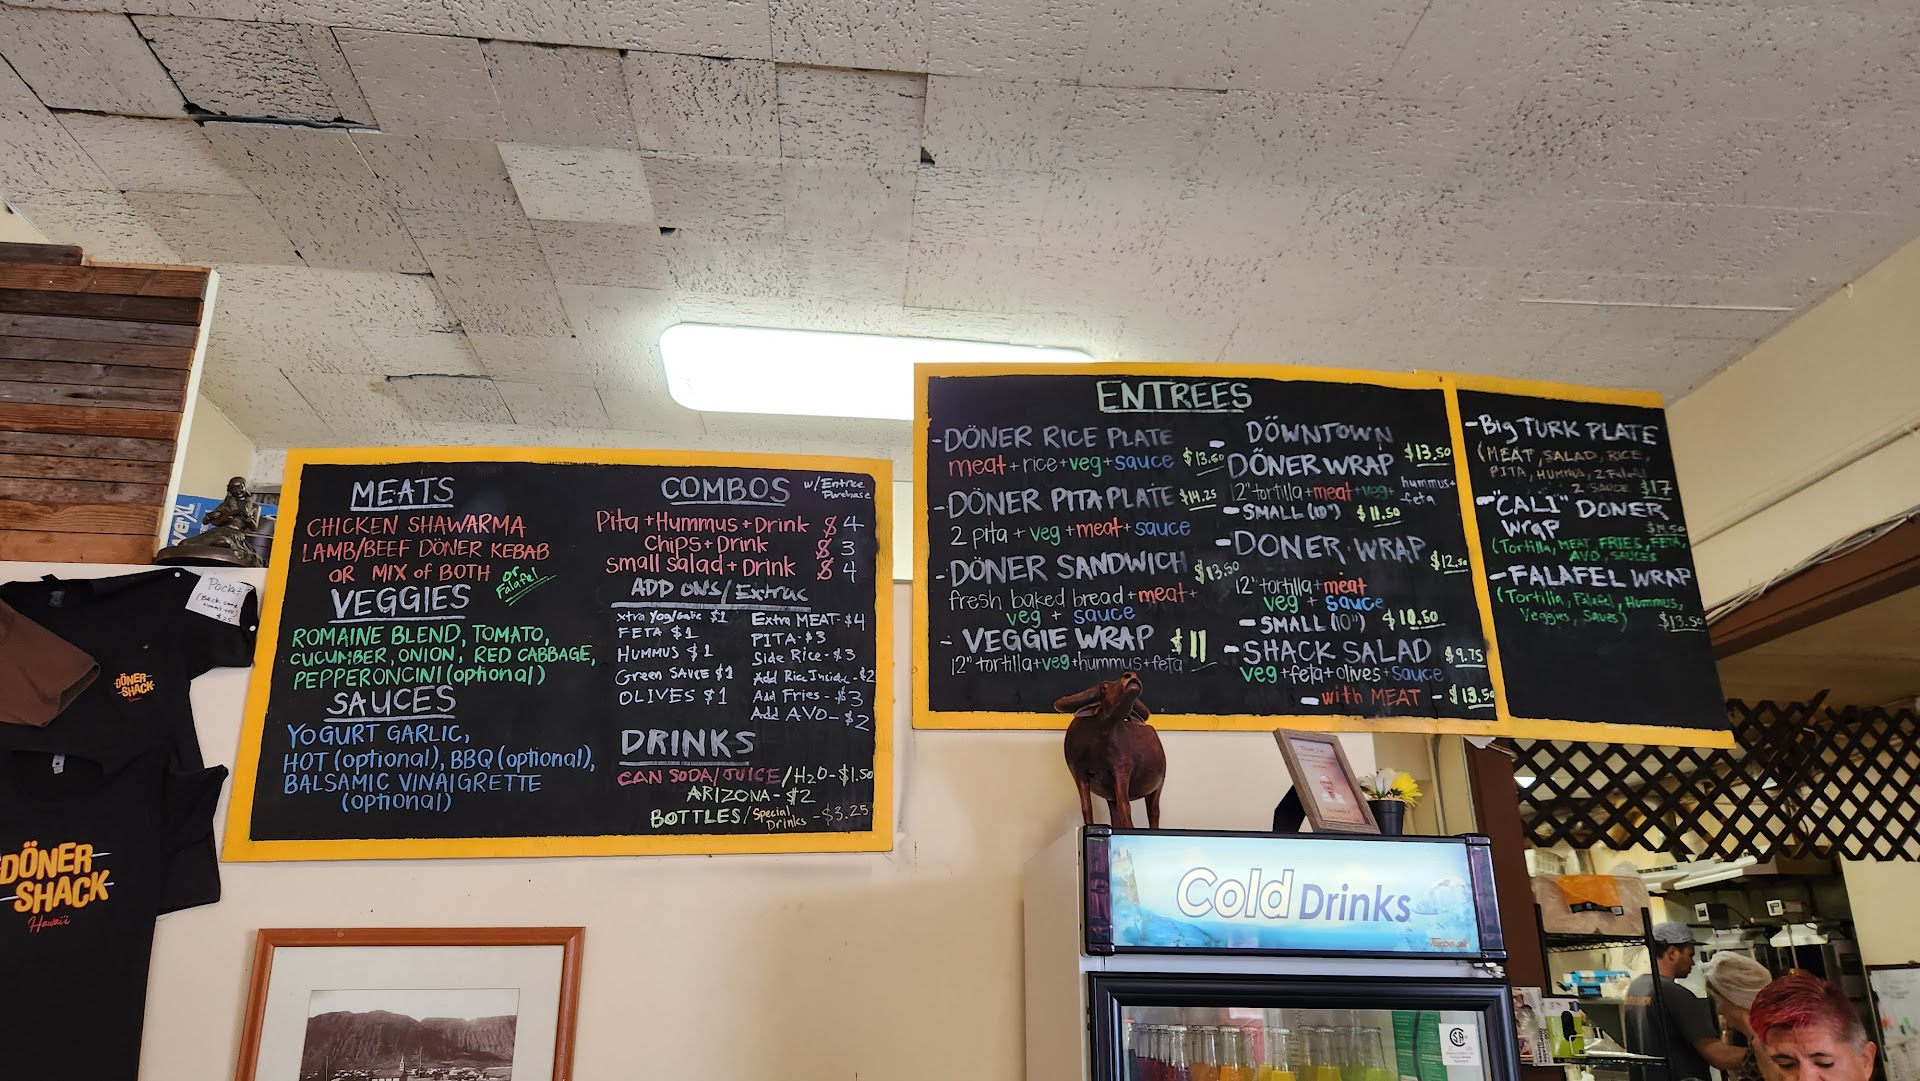 MEATS
CHICKEN SHAWARMA
LAMB/BEEF DÖNER KEBAB
OR MIX of BOTH
or Falafel
VEGGIES
ROMAINE BLEND, TOMATO,
CUCUMBER, ONION, RED CABBAGE,
PEPPERONCINI (optional)
SAUCES
YOGURT GARLIC,
HOT (optional), BBQ (optional),
BALSAMIC VINAIGRETTE
(optional)
COMBOS w/Entree Purchase
Pita + Hummus + Drink $4
Chips + Drink $3
small salad + Drink $4
ADD ONS/Extras
xtra Yog/Garlic $1
FETA $1
HUMMUS $1
Green SAUCE $1
OLIVES $1
Extra MEAT- $4
PITA- $3
Side Rice- $3
Add Rice Inside- $2
Add Fries- $3
Add AVO- $2
DRINKS
CAN SODA/JUICE/H2O- $1.50
ARIZONA- $2
BOTTLES/Special Drinks - $3.25
ENTREES
- DÖNER RICE PLATE
meat + rice + veg + sauce $13.50
- DÖNER PITA PLATE $14.25
2 pita + veg + meat + sauce
- DÖNER SANDWICH $13.50
fresh baked bread + meat +
veg + sauce
- VEGGIE WRAP $11
12" tortilla + veg + hummus + feta
- DÖWNTOWN
DÖNER WRAP $13.50
12" tortilla + meat + veg + hummus + feta
- SMALL (10") $11.50
- DONER WRAP $12.50
12" tortilla + meat
veg + sauce
- SMALL (10") $10.50
- SHACK SALAD $9.75
veg + feta + olives + sauce
- with MEAT - $13.50
- Big TURK PLATE
(MEAT, SALAD, RICE,
PITA, HUMMUS, 2 Falafel
2 SAUCE $17
- "CALI" DONER
WraP
(Tortilla, MEAT, FRIES, FETA,
AVO, SAUCES
- FALAFEL WRAP
(Tortilla, Falafel, Hummus,
Veggies, Sauces) $13.50
Cold Drinks
Turbo air
DÖNER
SHACK
DÖNER
SHACK
Hawai'i
Pocket